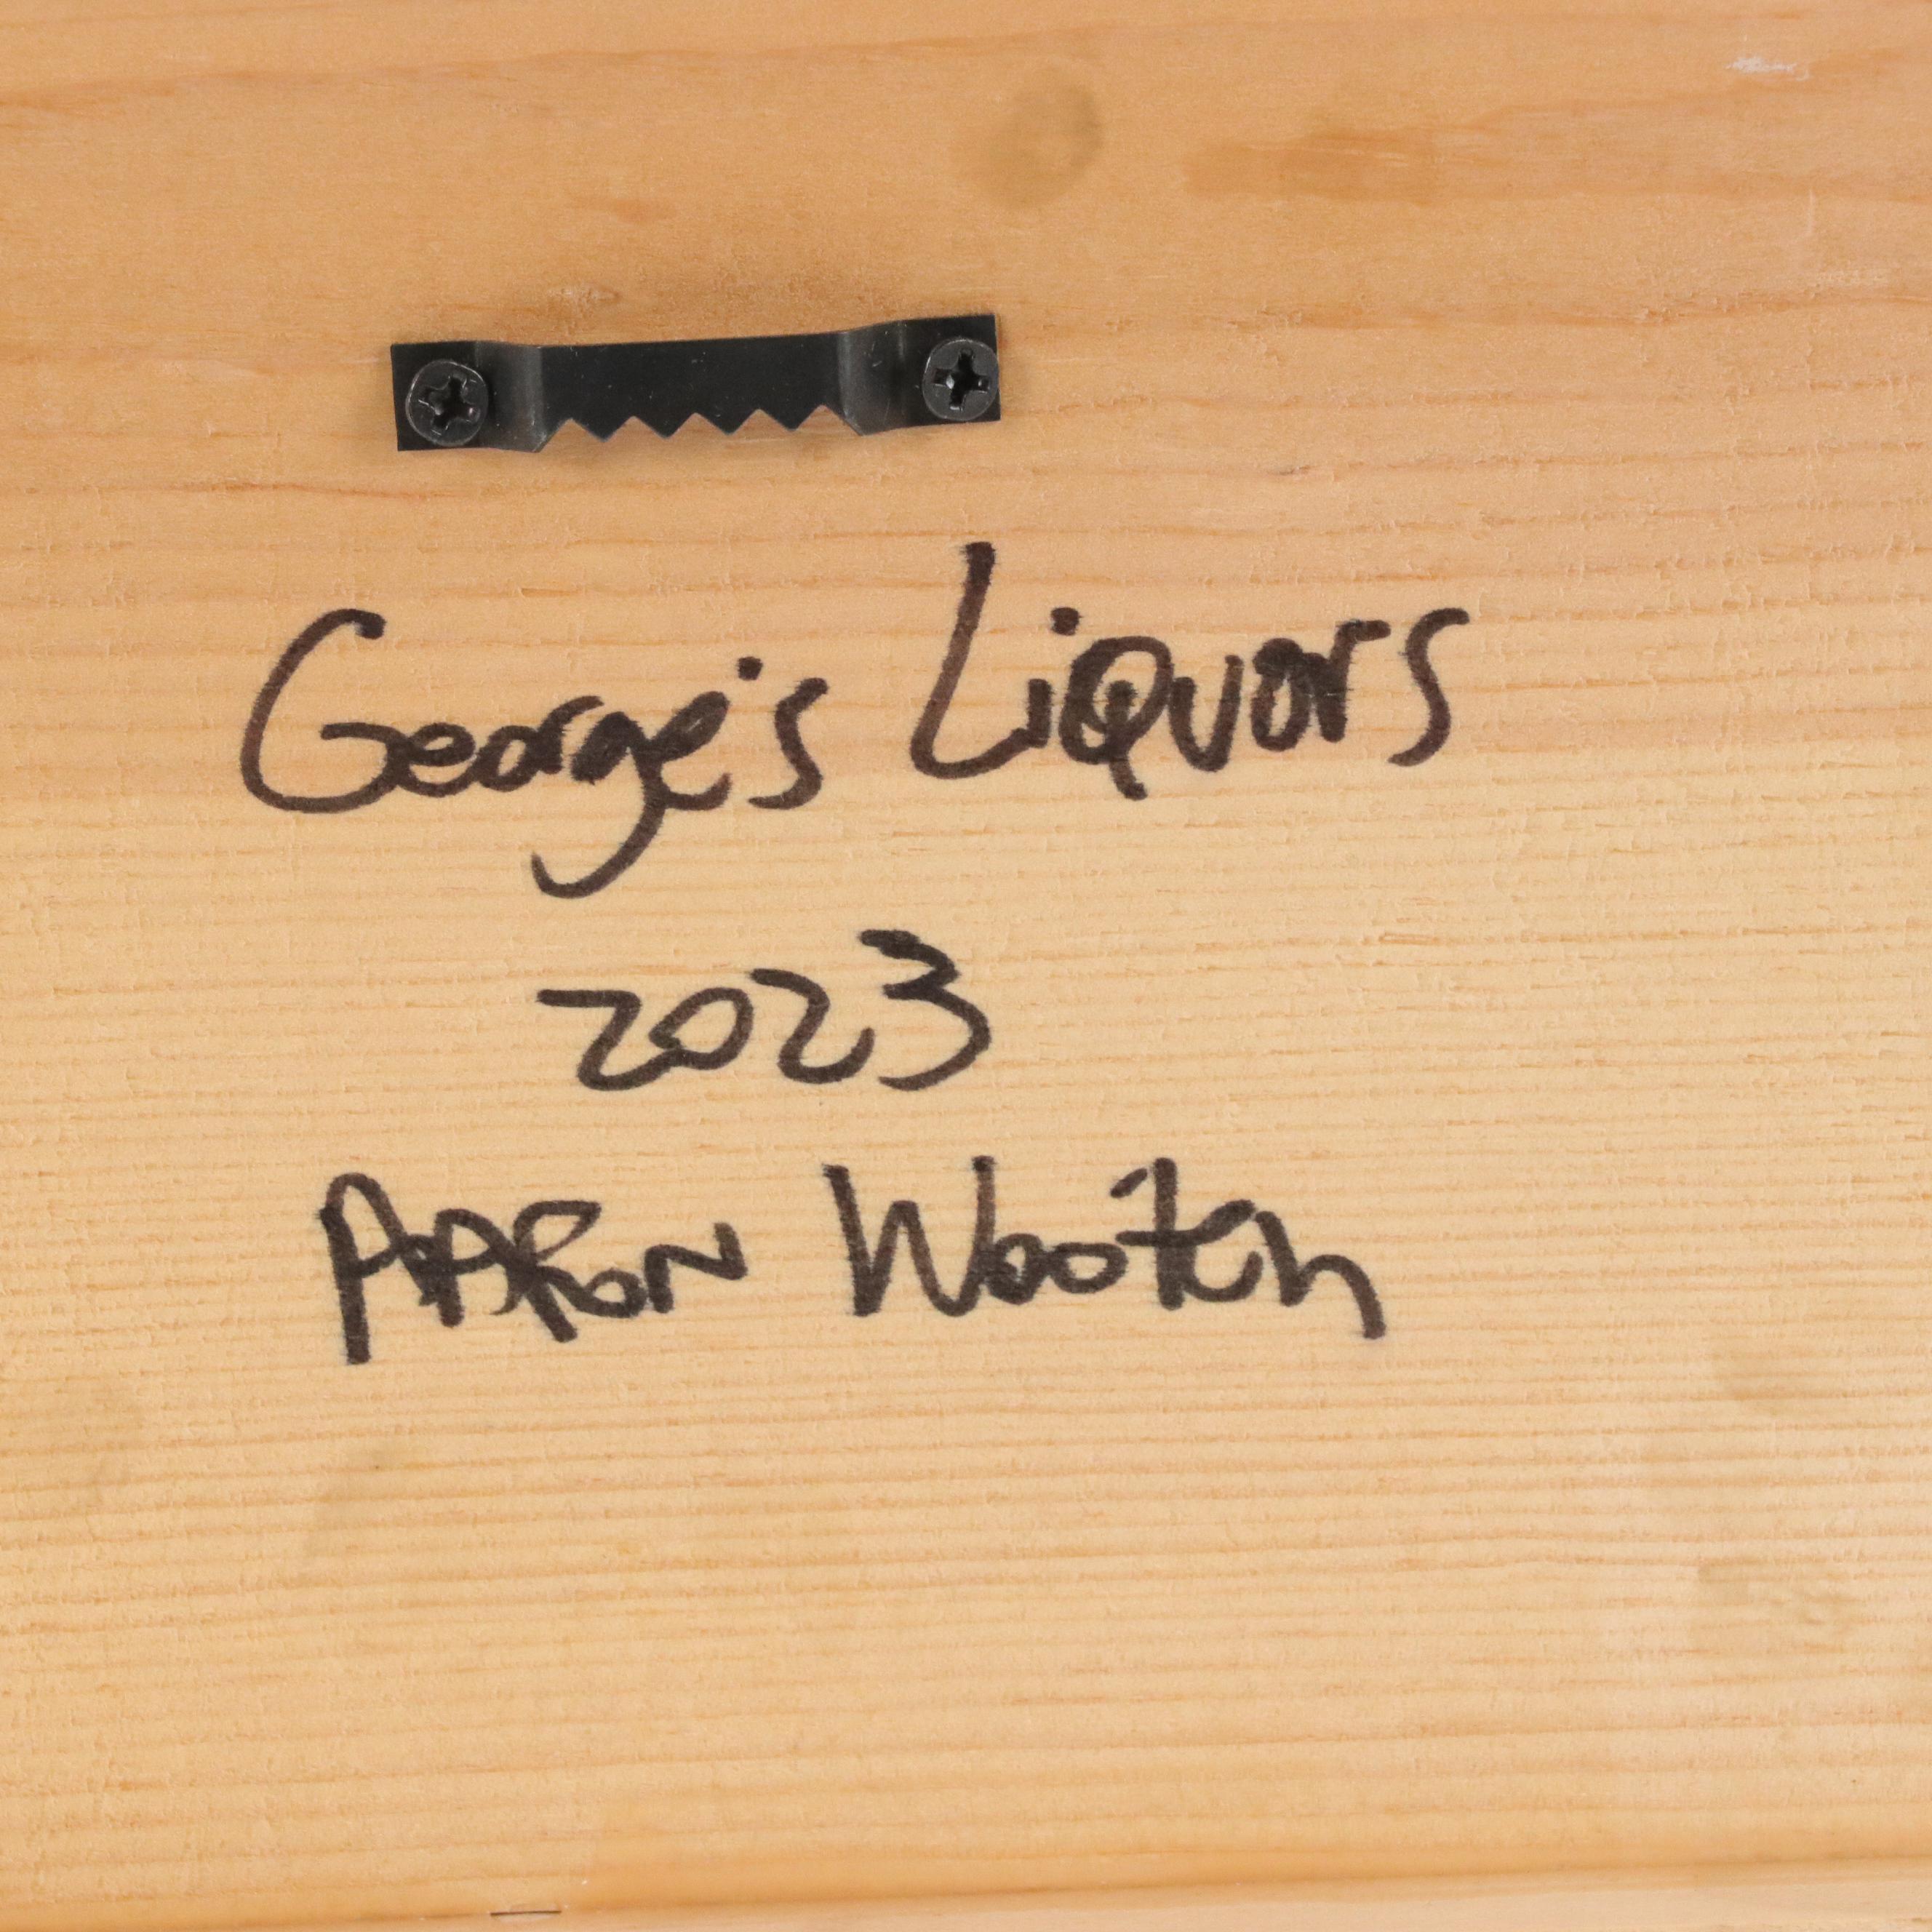 George's Liquors
2023
AARON Wooten